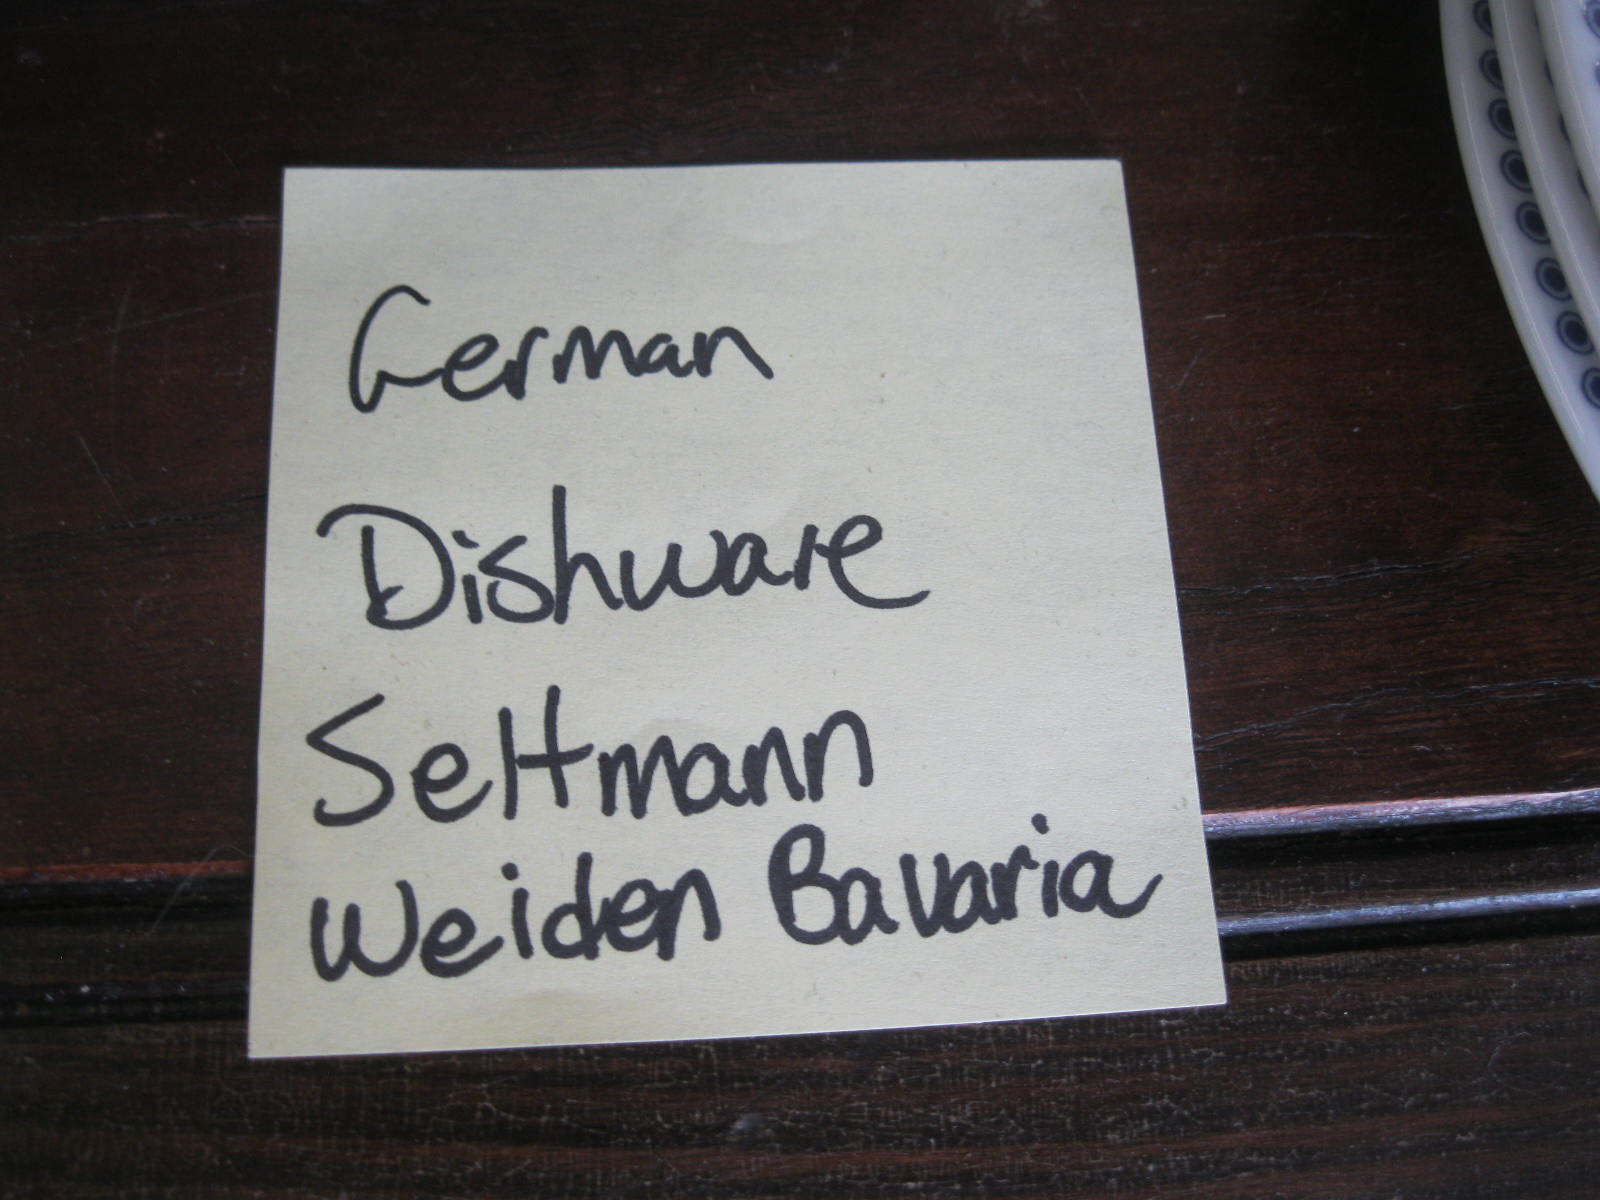 German
Dishware
Seltmann
Weiden Bavaria